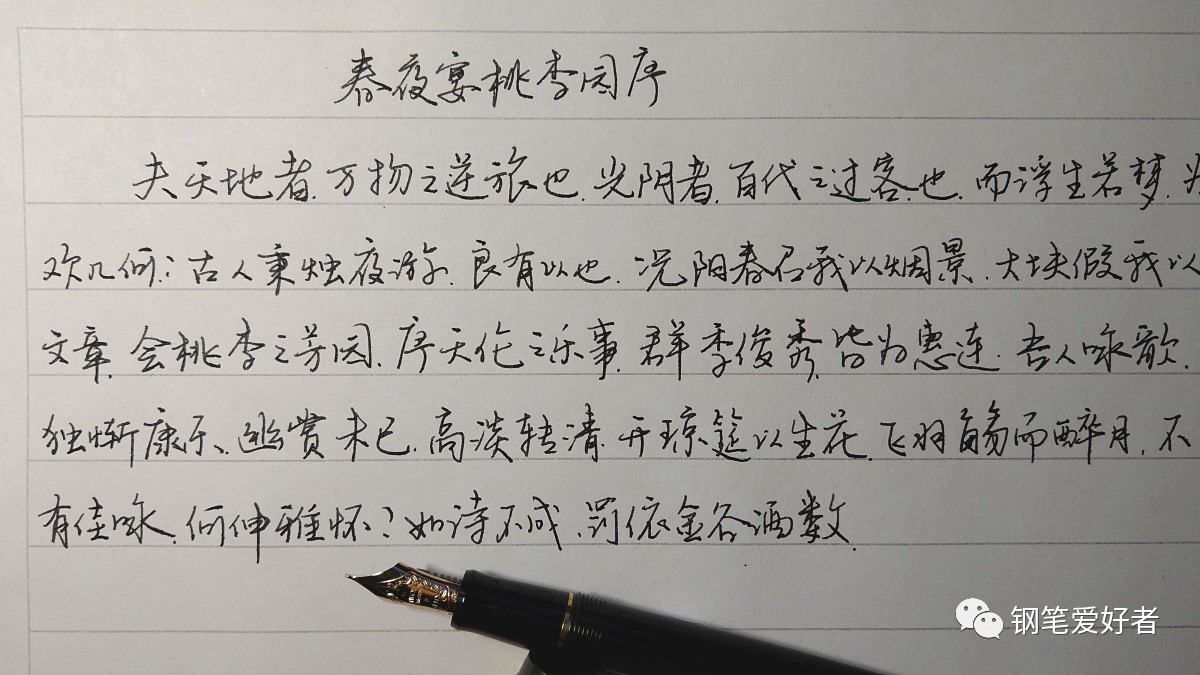 春夜宴桃李园序
夫天地者.万物之逆旅也.光阴者.百代之过客也.而浮生若梦.为
欢几何?古人秉烛夜游.良有以也.况阳春召我以烟景.大块假我以
文章.会桃李之芳园.序天伦之乐事.群季俊秀.皆为惠连.吾人咏歌.
独惭康乐.幽赏未已.高谈转清.开琼筵以坐花.飞羽觞而醉月.不
有佳咏.何伸雅怀?如诗不成.罚依金谷酒数.
钢笔爱好者